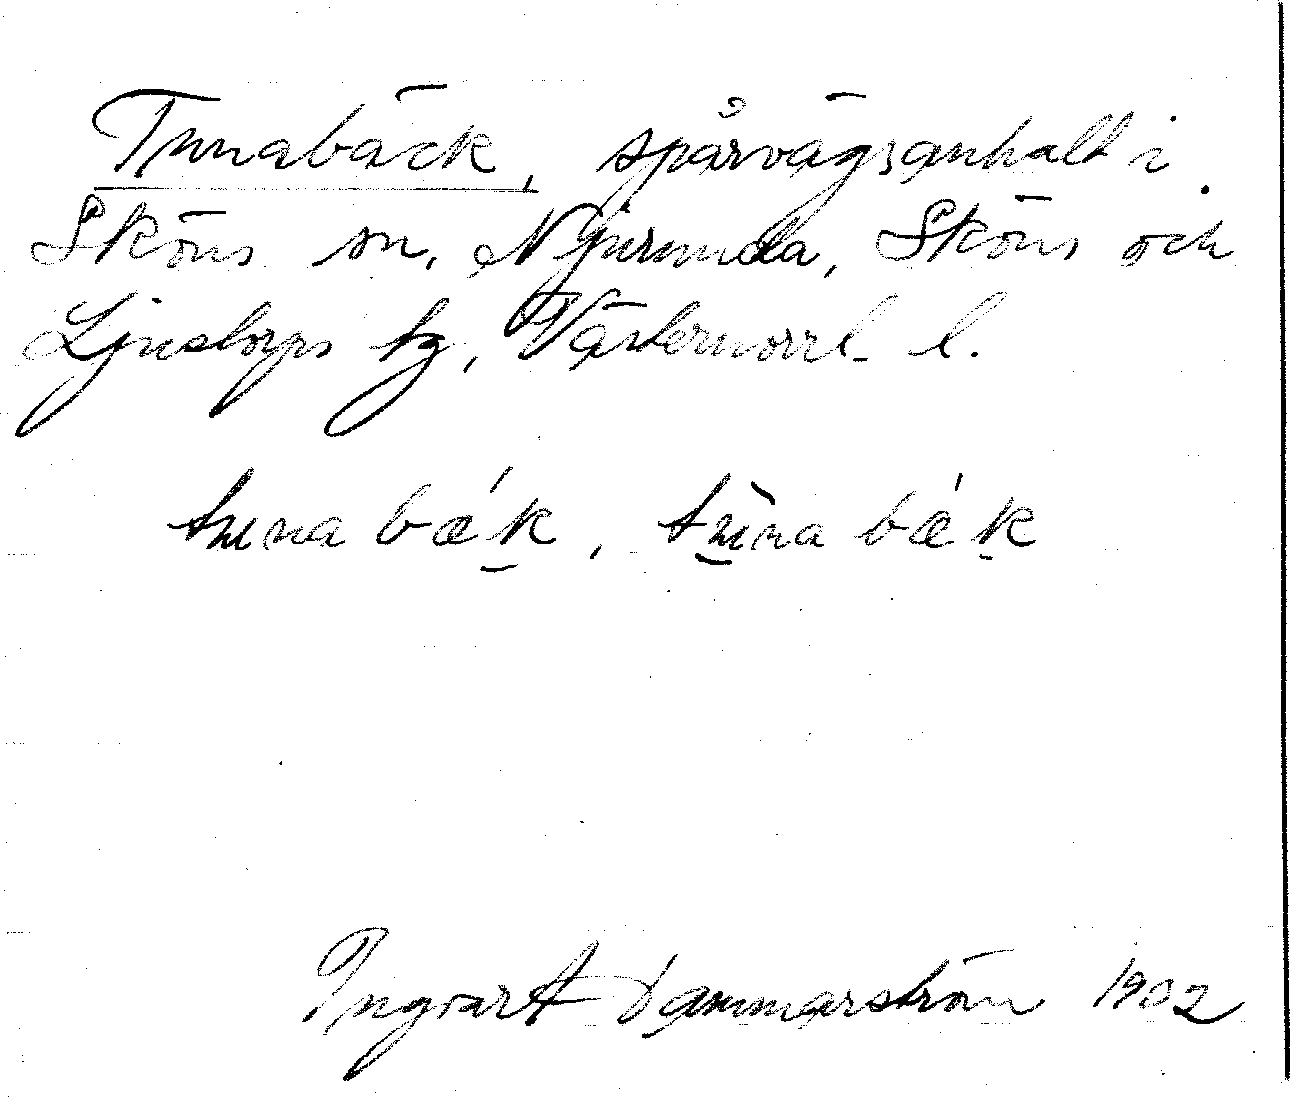 Tunabäck, spårvägsanhalt i
Sköns sn, Njurunda, Sköns och
Ljustorps tg, Västernorrl. l.
Ingvar Hammarström 1902